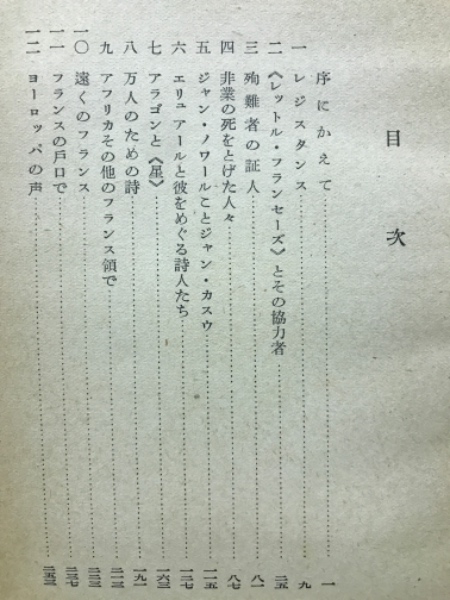 目次
序にかえて……一
一 レジスタンス……九
二 《レットル・フランセーズ》とその協力者……二五
三 殉難者の証人……八一
四 非業の死をとげた人々……八七
五 ジャン・ノワールことジャン・カスウ……一一五
六 エリュアールと彼をめぐる詩人たち……一二七
七 アラゴンと《星》……一六三
八 万人のための詩……一九一
九 アフリカその他のフランス領で……二一三
一〇 遠くのフランス……二二三
一一 フランスの戸口で……二三七
一二 ヨーロッパの声……二五三